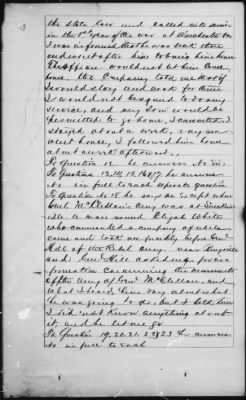 3
the state law and called into service
in the 1st year of the war at Winchester Va
I was informed that he was sick there
and went after him to bring him home
The officer would not let him come
home, the Company told me if
I would stay and cook for them
I would not be against to do any
service, and my Son would be
permitted to go home, I consented I
stayed about a week, my son
went home, I followed him home
about a week afterwards,
To Question 12 he answers No Sir.
To Questions 13, 14, 15, 16 & 17 he answers
No in full to each separate question
To Question No 18 he says no except when
Genl McClellan's army was at
ville. A man named Elijah White
who commanded a company of rebels
came and took me forcibly before Gen
Hill of the Rebel Army near Leesville
and Gen Hill asked me for in-
formation concerning the movements
of the Army of Genl McClellan, and
what I heard him say about what
he was going to do, but I told him
I did not know anything about
it and he let me go
To Question 19, 20, 21, 22 & 23 he answers
no in full to each